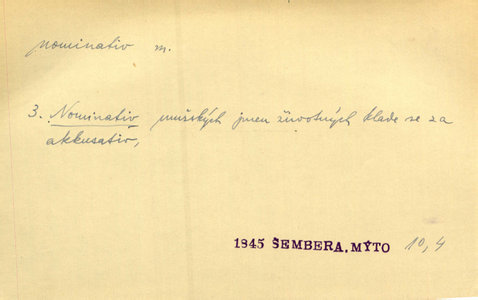 nominativ m.
3. Nominativ mužských jmen životných klade se za
akkusativ,
1845 ŠEMBERA, MÝTO 10, 4